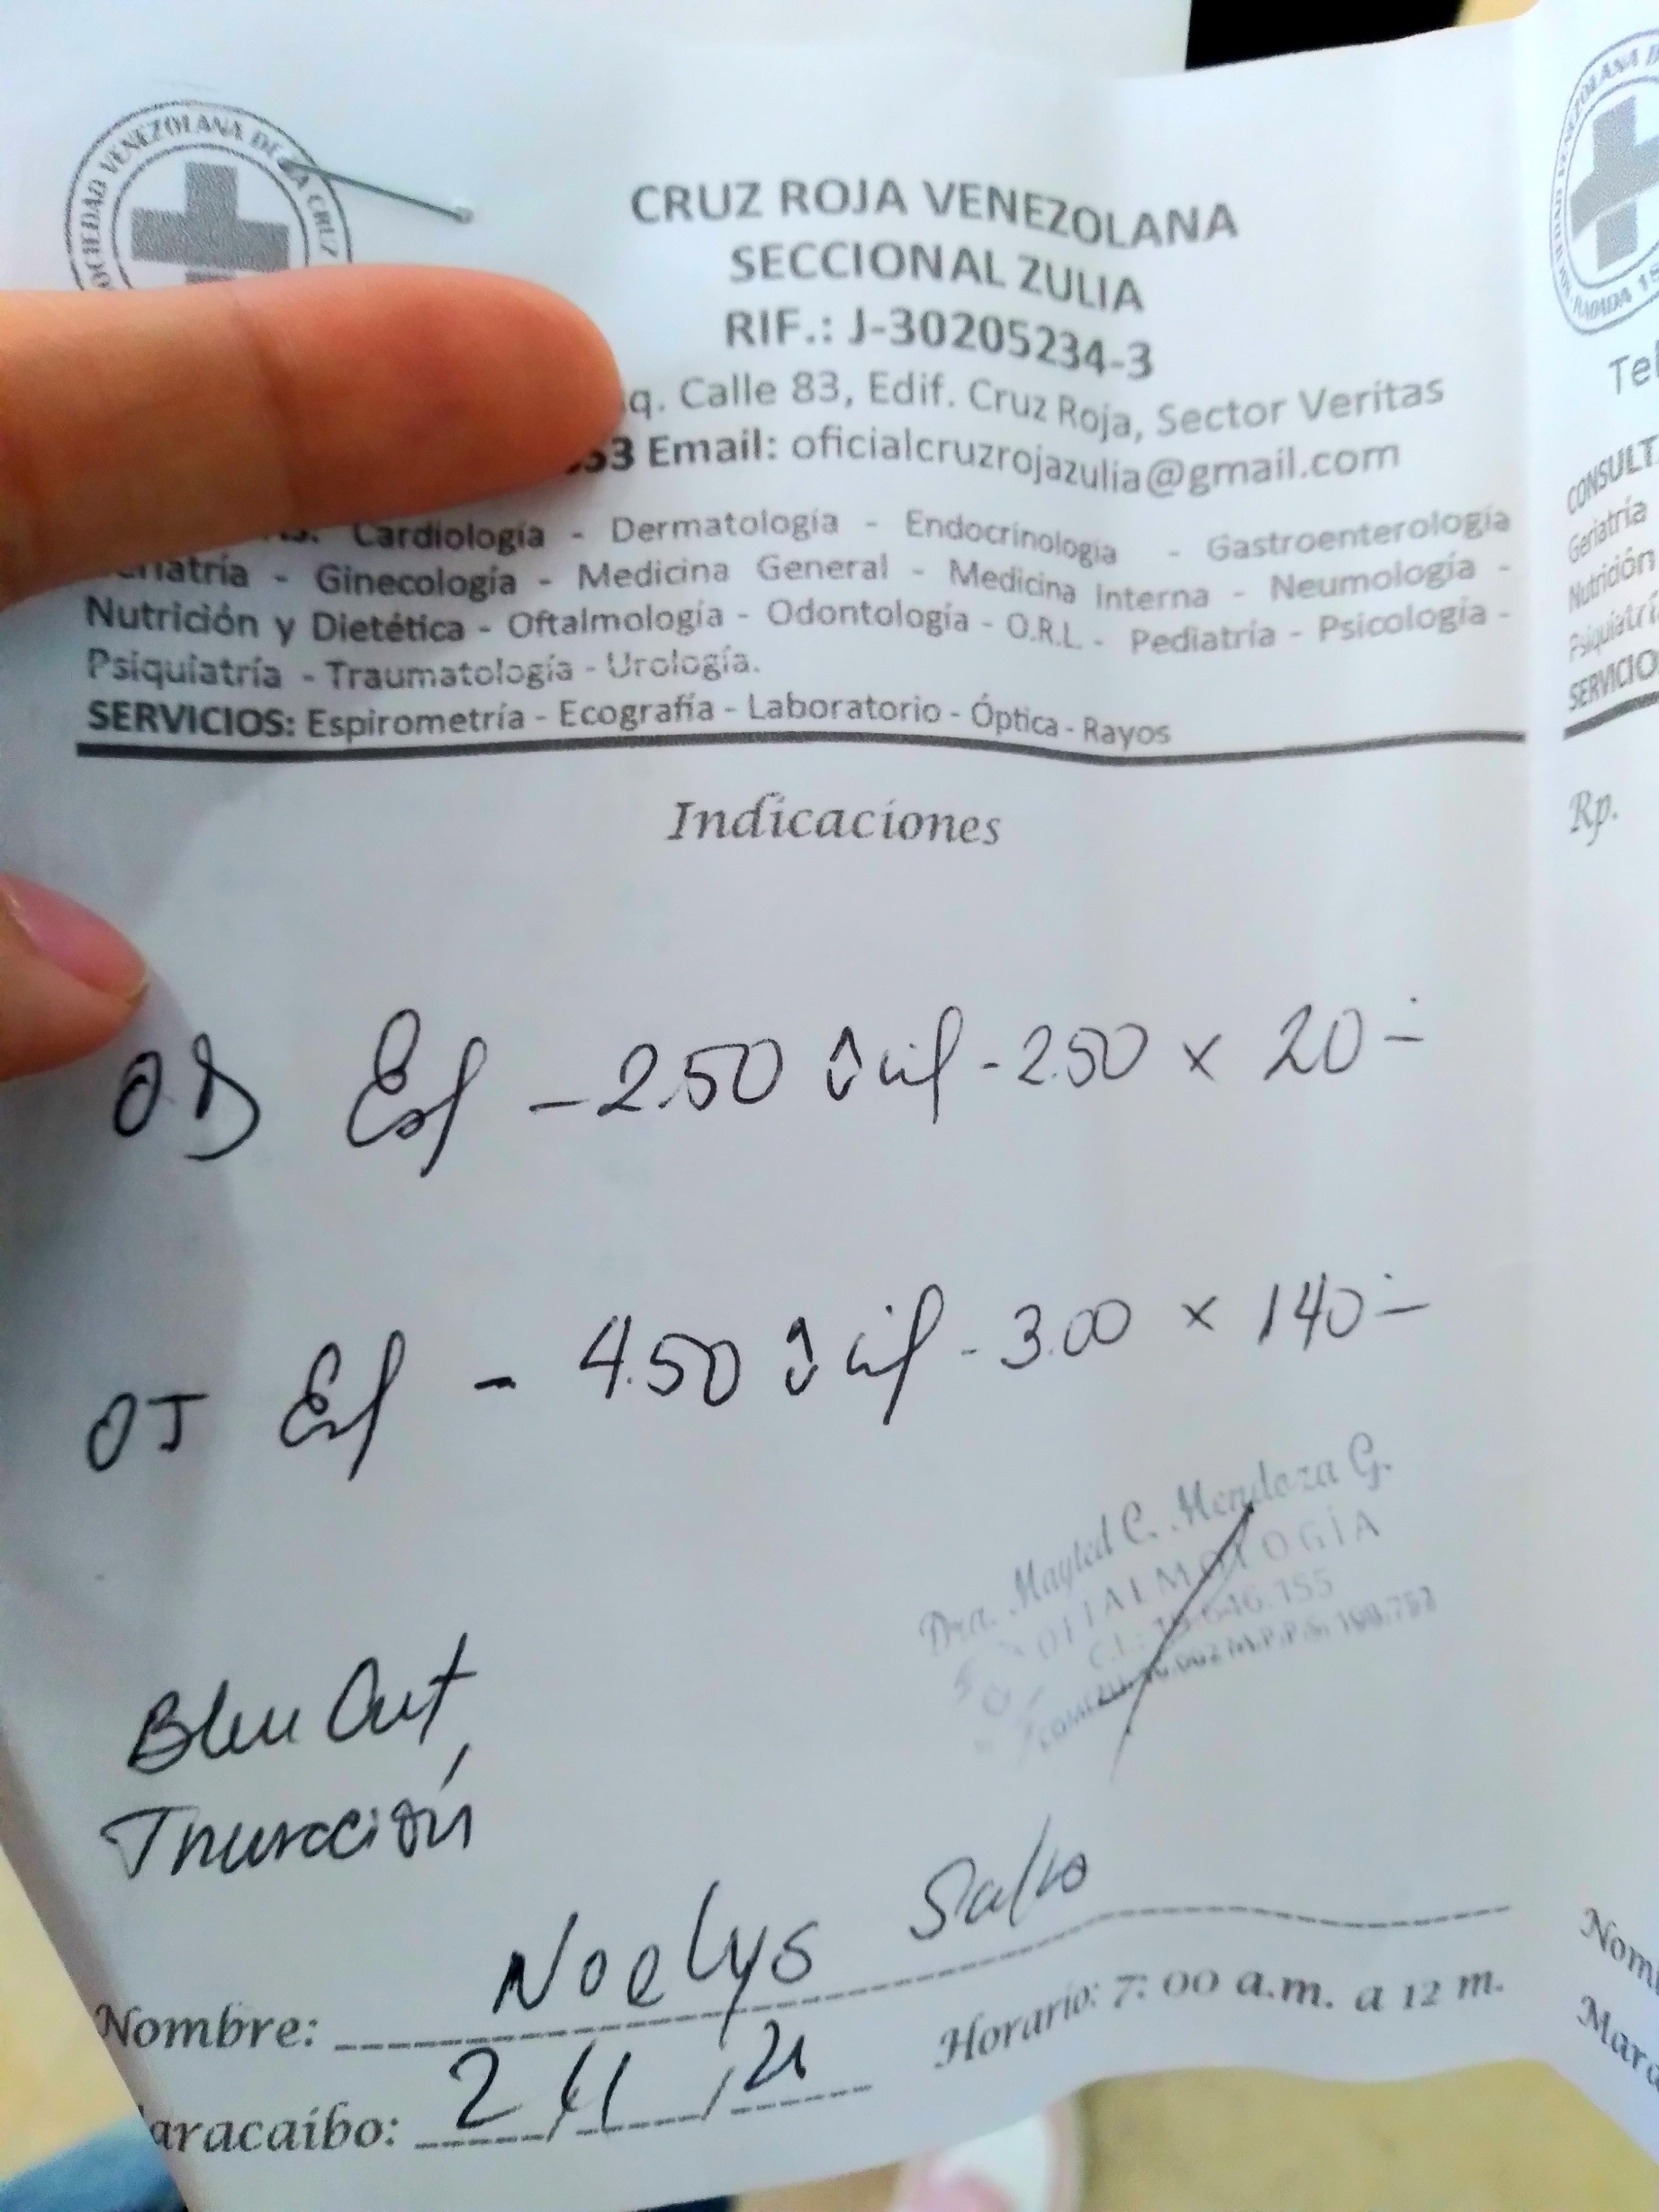 SOCIEDAD VENEZOLANA DE LA CRUZ
CRUZ ROJA VENEZOLANA
SECCIONAL ZULIA
RIF.: J-30205234-3
q. Calle 83, Edif. Cruz Roja, Sector Veritas
53 Email: oficialcruzrojazulia@gmail.com
Cardiología - Dermatología - Endocrinología - Gastroenterología
Ginecología - Medicina General - Medicina Interna - Neumología -
Nutrición y Dietética - Oftalmología - Odontología - O.R.L. - Pediatría - Psicología -
Psiquiatría - Traumatología - Urología.
SERVICIOS: Espirometría - Ecografía - Laboratorio - Óptica - Rayos
Indicaciones
OD Esf -2.50 Cil -2.50 x 20
OI Esf -4.50 Cil -3.00 x 140
Dra. Mayted C. Mendoza G.
OFTALMOLOGÍA
Blue Cut
Nombre: Noelys
Horario: 7:00 a.m. a 12 m.
aracaibo: 2/11/21
Tel
CONSULT
Geriatría
Nutrición
Psiquiatrí
SERVICIO
Rp.
Nom
Mara